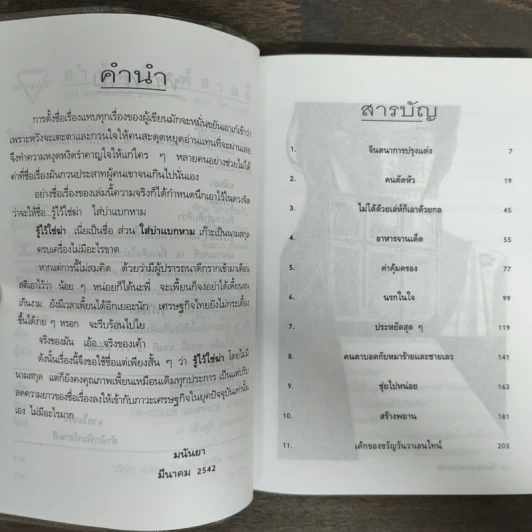 คำนำ
การตั้งชื่อเรื่องแทบทุกเรื่องของผู้เขียนมักจะหมั่นขยันเอาแก่เข้าว่า
เพราะหวังจะเตะตาและกวนใจให้คนสะดุดหยุดอ่านแทนที่จะผ่านเลย
จึงทำความหงุดหงิดรำคาญใจให้แก่ใคร ๆ หลายคนอย่างช่วยไม่ได้
ค่าที่ชื่อเรื่องมันกวนประสาทผู้คนเขาจนเกินไปนั่นเอง
อย่างชื่อเรื่องของเล่มนี้ความจริงก็ได้กำหนดนึกเอาไว้ในดวงจิต
ว่าจะให้ชื่อ..รู้ไว้ใช่ฆ่า ใส่บ่าแบกหาม
รู้ไว้ใช่ฆ่า เนี่ยเป็นชื่อ ส่วน ใส่บ่าแบกหาม เก๊าะเป็นนามสกุล
ครบเครื่องไม่มีอะไรขาด
หากแต่การนี้ไม่สมคิด ด้วยว่ามีผู้ปรารถนาดีกรากเข้ามาเตือน
สติเอาไว้ว่า น้อย ๆ หน่อยก็ได้นะพี่ จะเพี้ยนก็จงอย่าได้เพี้ยนจน
เกินงาม ยังมีเวลาเพี้ยนได้อีกเยอะนัก เศรษฐกิจไทยยังไม่กระเตื้อง
ขึ้นได้ง่าย ๆ หรอก จะรีบร้อนไปใย
จริงของมัน เอ้อ..จริงของเค้า
ดังนั้นเรื่องนี้จึงขอใช้ชื่อแต่เพียงสั้น ๆ ว่า รู้ไว้ใช่ฆ่า โดยไม่มี
นามสกุล แต่ก็ยังคงคุณภาพเพี้ยนเหมือนเดิมทุกประการ เป็นแต่ปรับ
ลดความยาวของชื่อเรื่องลงให้เข้ากับภาวะเศรษฐกิจในยุคปัจจุบันเท่านั้น
เอง ไม่มีอะไรมาก
มนันยา
มีนาคม 2542
สารบัญ
1. จินตนาการปรุงแต่ง 7
2. คนตัดหัว 19
3. ไม่ได้ด้วยเล่ห์ก็เอาด้วยกล 45
4. อาหารจานเด็ด 55
5. ค่าคุ้มครอง 77
6. นรกในใจ 99
7. ประหยัดสุด ๆ 119
8. คนตาบอดกับหมาร้ายและชายเลว 141
9. ชุ่ยไปหน่อย 163
10. สร้างพยาน 181
11. เค้กของขวัญวันวาเลนไทน์ 203